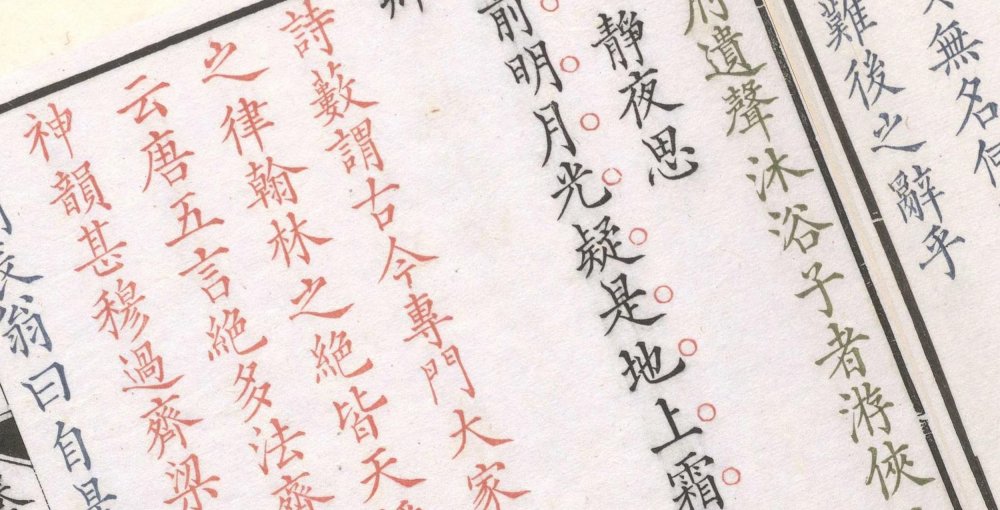 無名
難後之辭乎
府遺聲沐浴子者游俠
靜夜思
前明月光疑是地上霜
詩藪謂古今專門大家
之律翰林之絶皆天
云唐五言絶多法齊
神韻甚穆過齊梁
翁曰自是